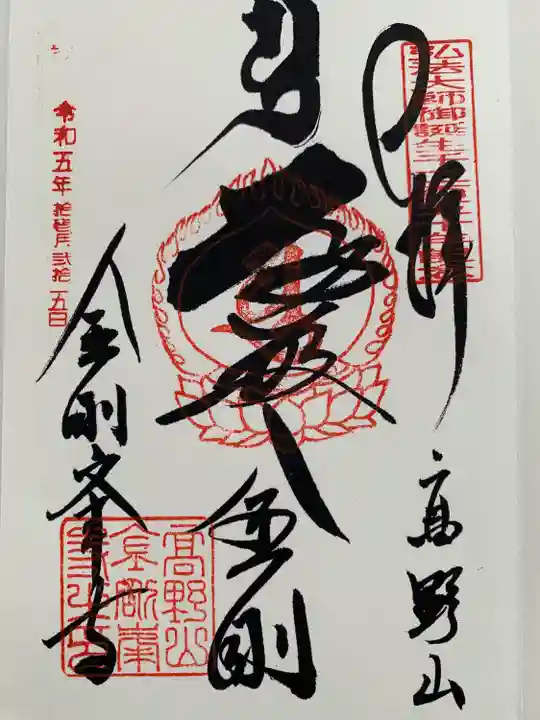 奉拝
高野山
遍照
金剛
金剛峯寺
令和五年拾弐月弐拾五日
弘法大師御誕生千二百五十年記念
高野山
金剛峯
寺之印